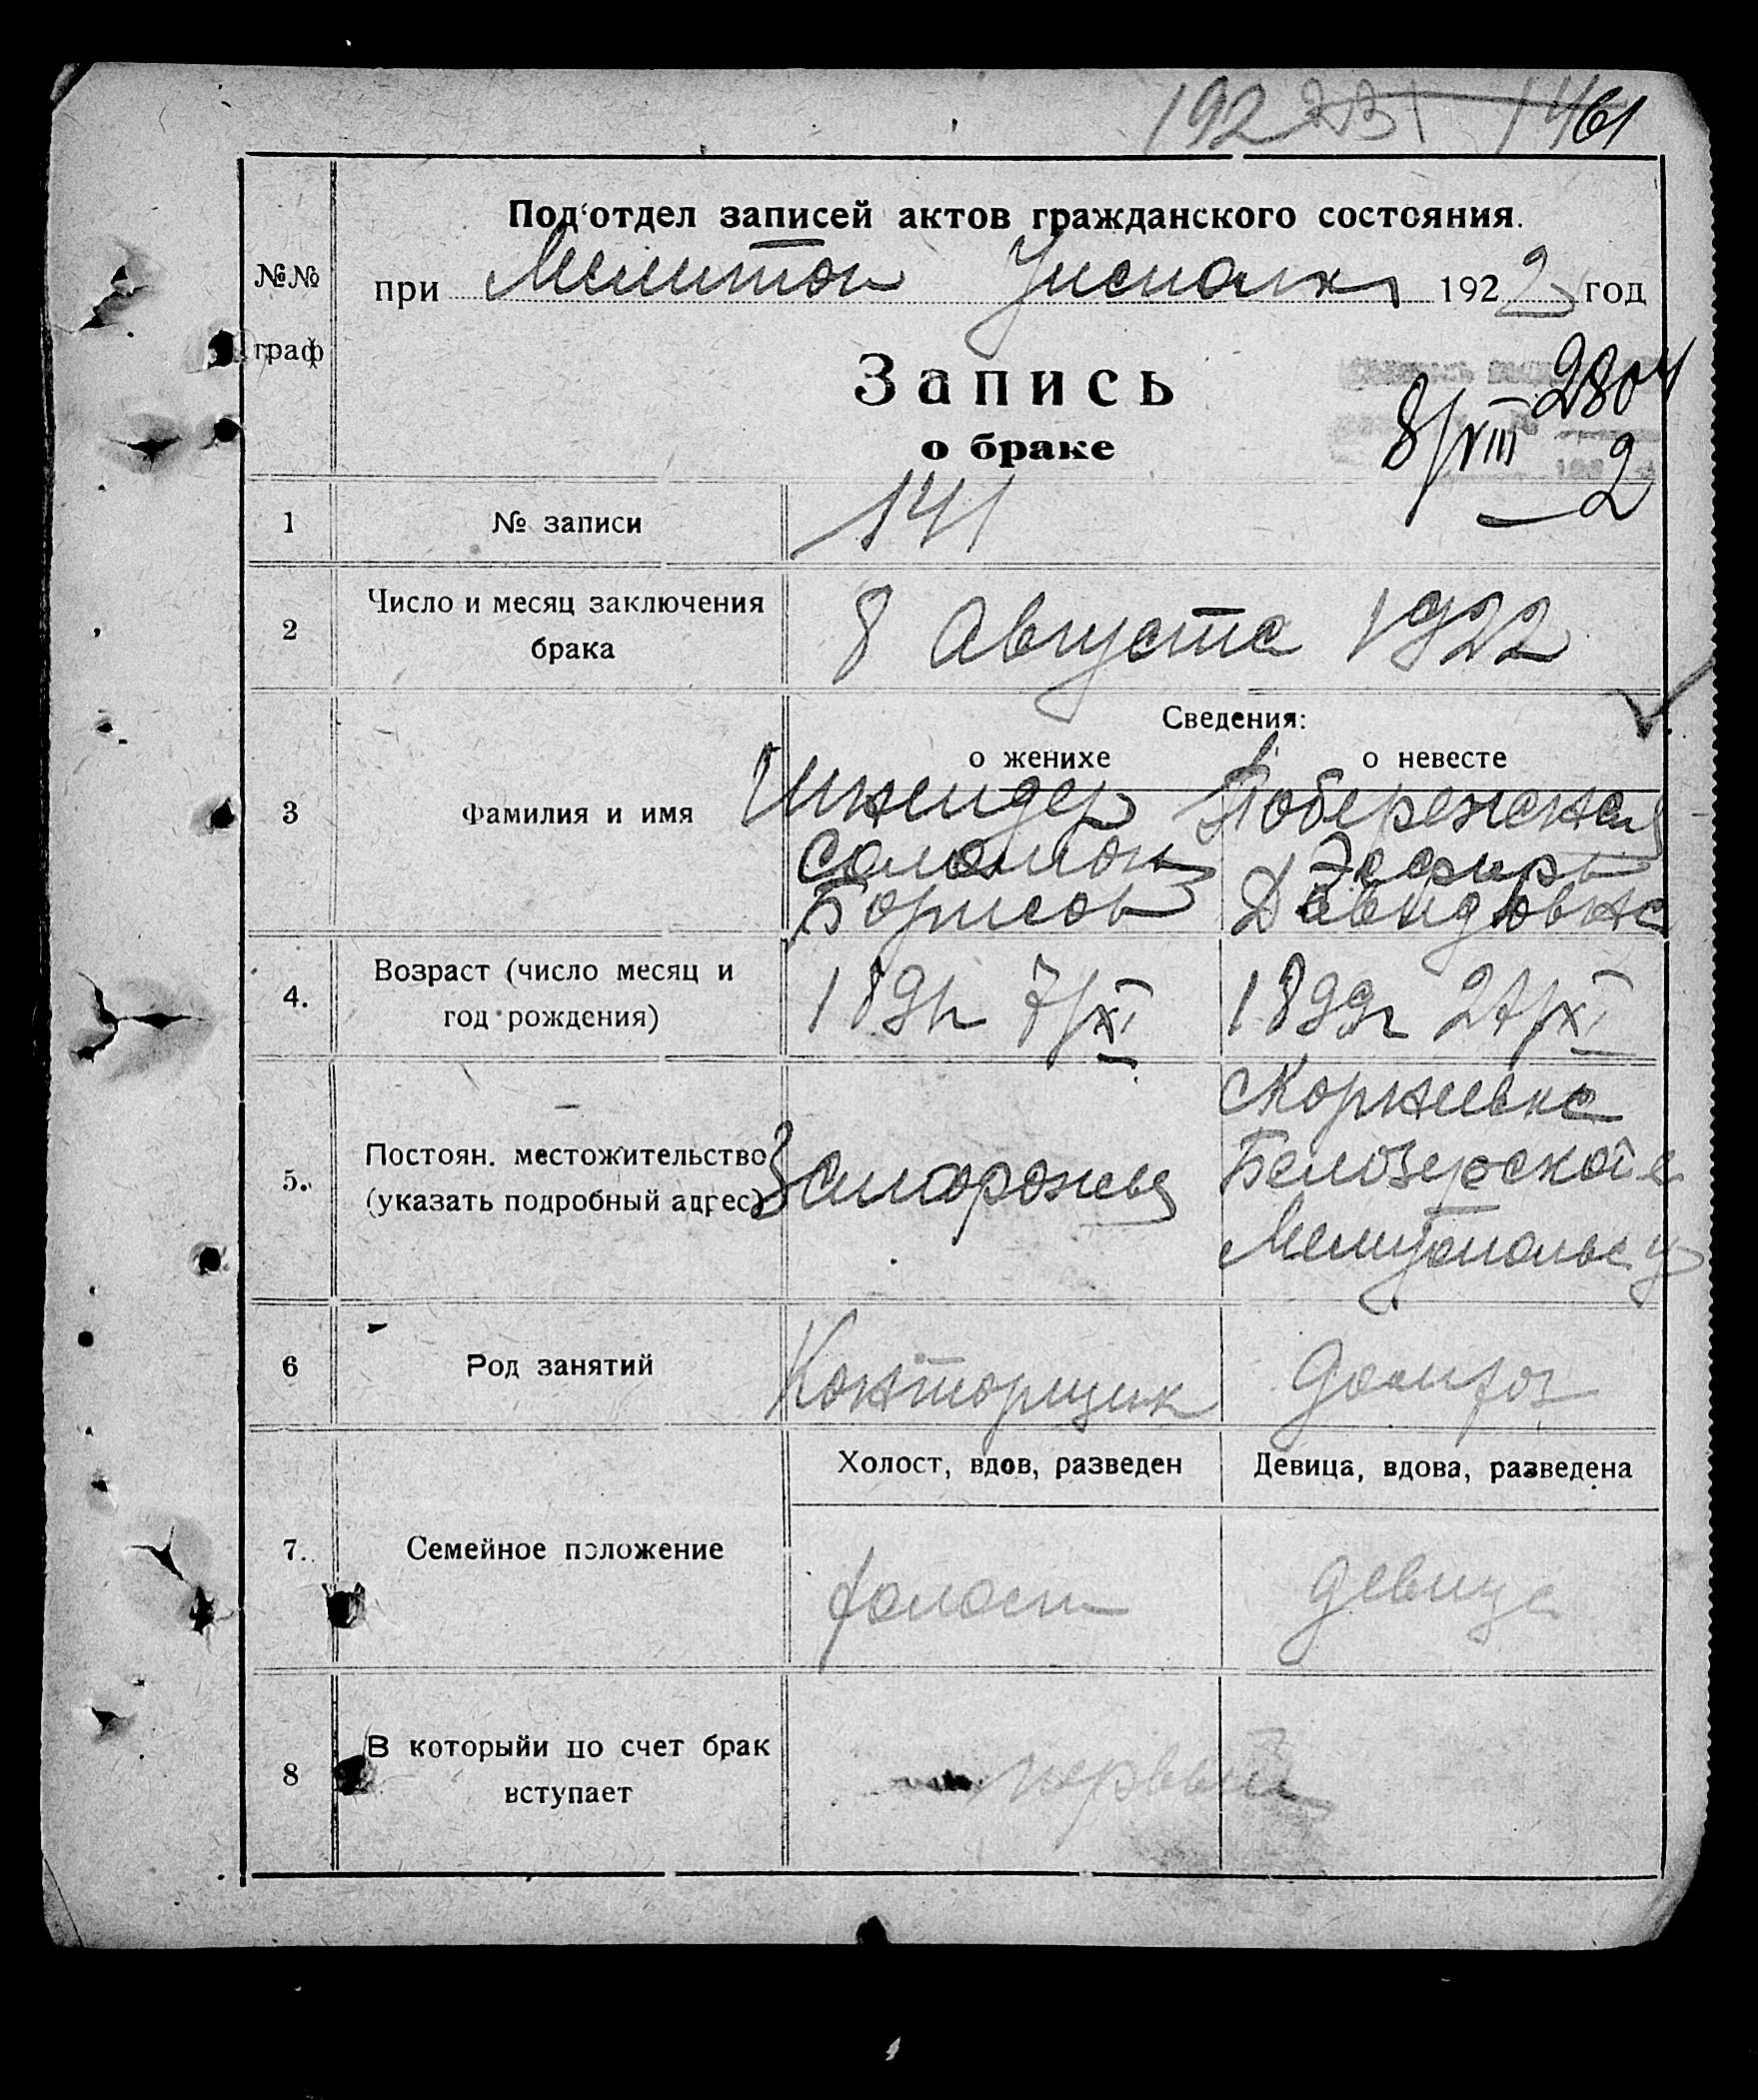 192
61
Под'отдел записей актов гражданского состояния.
№№
граф
при Мелитоп Уисполк 1922 год
Запись
о браке
2804
8/VIII 2
1 № записи 141
2 Число и месяц заключения
брака
8 Августа 1922
Сведения:
о женихе о невесте
3 Фамилия и имя
Шнейдер Побережская
Соломон Эсфирь
Борисов Давидовна
4. Возраст (число месяц и
год рождения)
7/XI 1899г 27/XI
5. Постоян. местожительство
(указать подробный адрес)
Запорожье
Корнеевка
Белозерской в
Мелитопольс у
6 Род занятий Конторщик домхоз
Холост, вдов, разведен Девица, вдова, разведена
7. Семейное положение холост девица
8 В которыйи по счет брак
вступает
первый